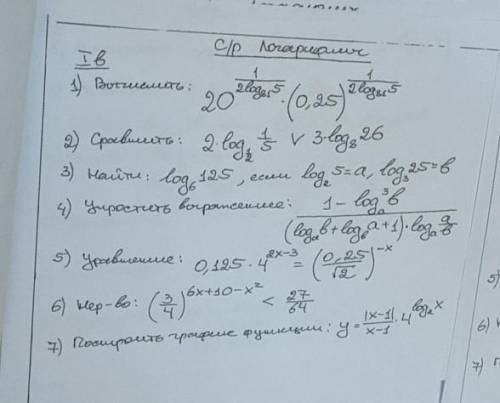 С/р Логарифмы
I в
1) Вычислить: 20^{\frac{1}{2\log_{21}5}} \cdot (0,25)^{\frac{1}{2\log_{21}5}}
2) Сравнить: 2·log_{1/2} 1/5 ∨ 3·log_8 26
3) Найти: log_6 125, если log_2 5=a, log_3 25=b
4) Упростить выражение: \frac{1 - \log_a^3 b}{(\log_a b + \log_b a + 1) \cdot \log_a \frac{a}{b}}
5) Уравнение: 0,125·4^{2x-3} = (\frac{0,25}{\sqrt{2}})^{-x}
6) Нер-во: (\frac{3}{4})^{6x+10-x^2} < \frac{27}{64}
7) Построить график функции: y = \frac{|x-1|}{x-1}·4^{\log_2 x}
5)
6)
7)